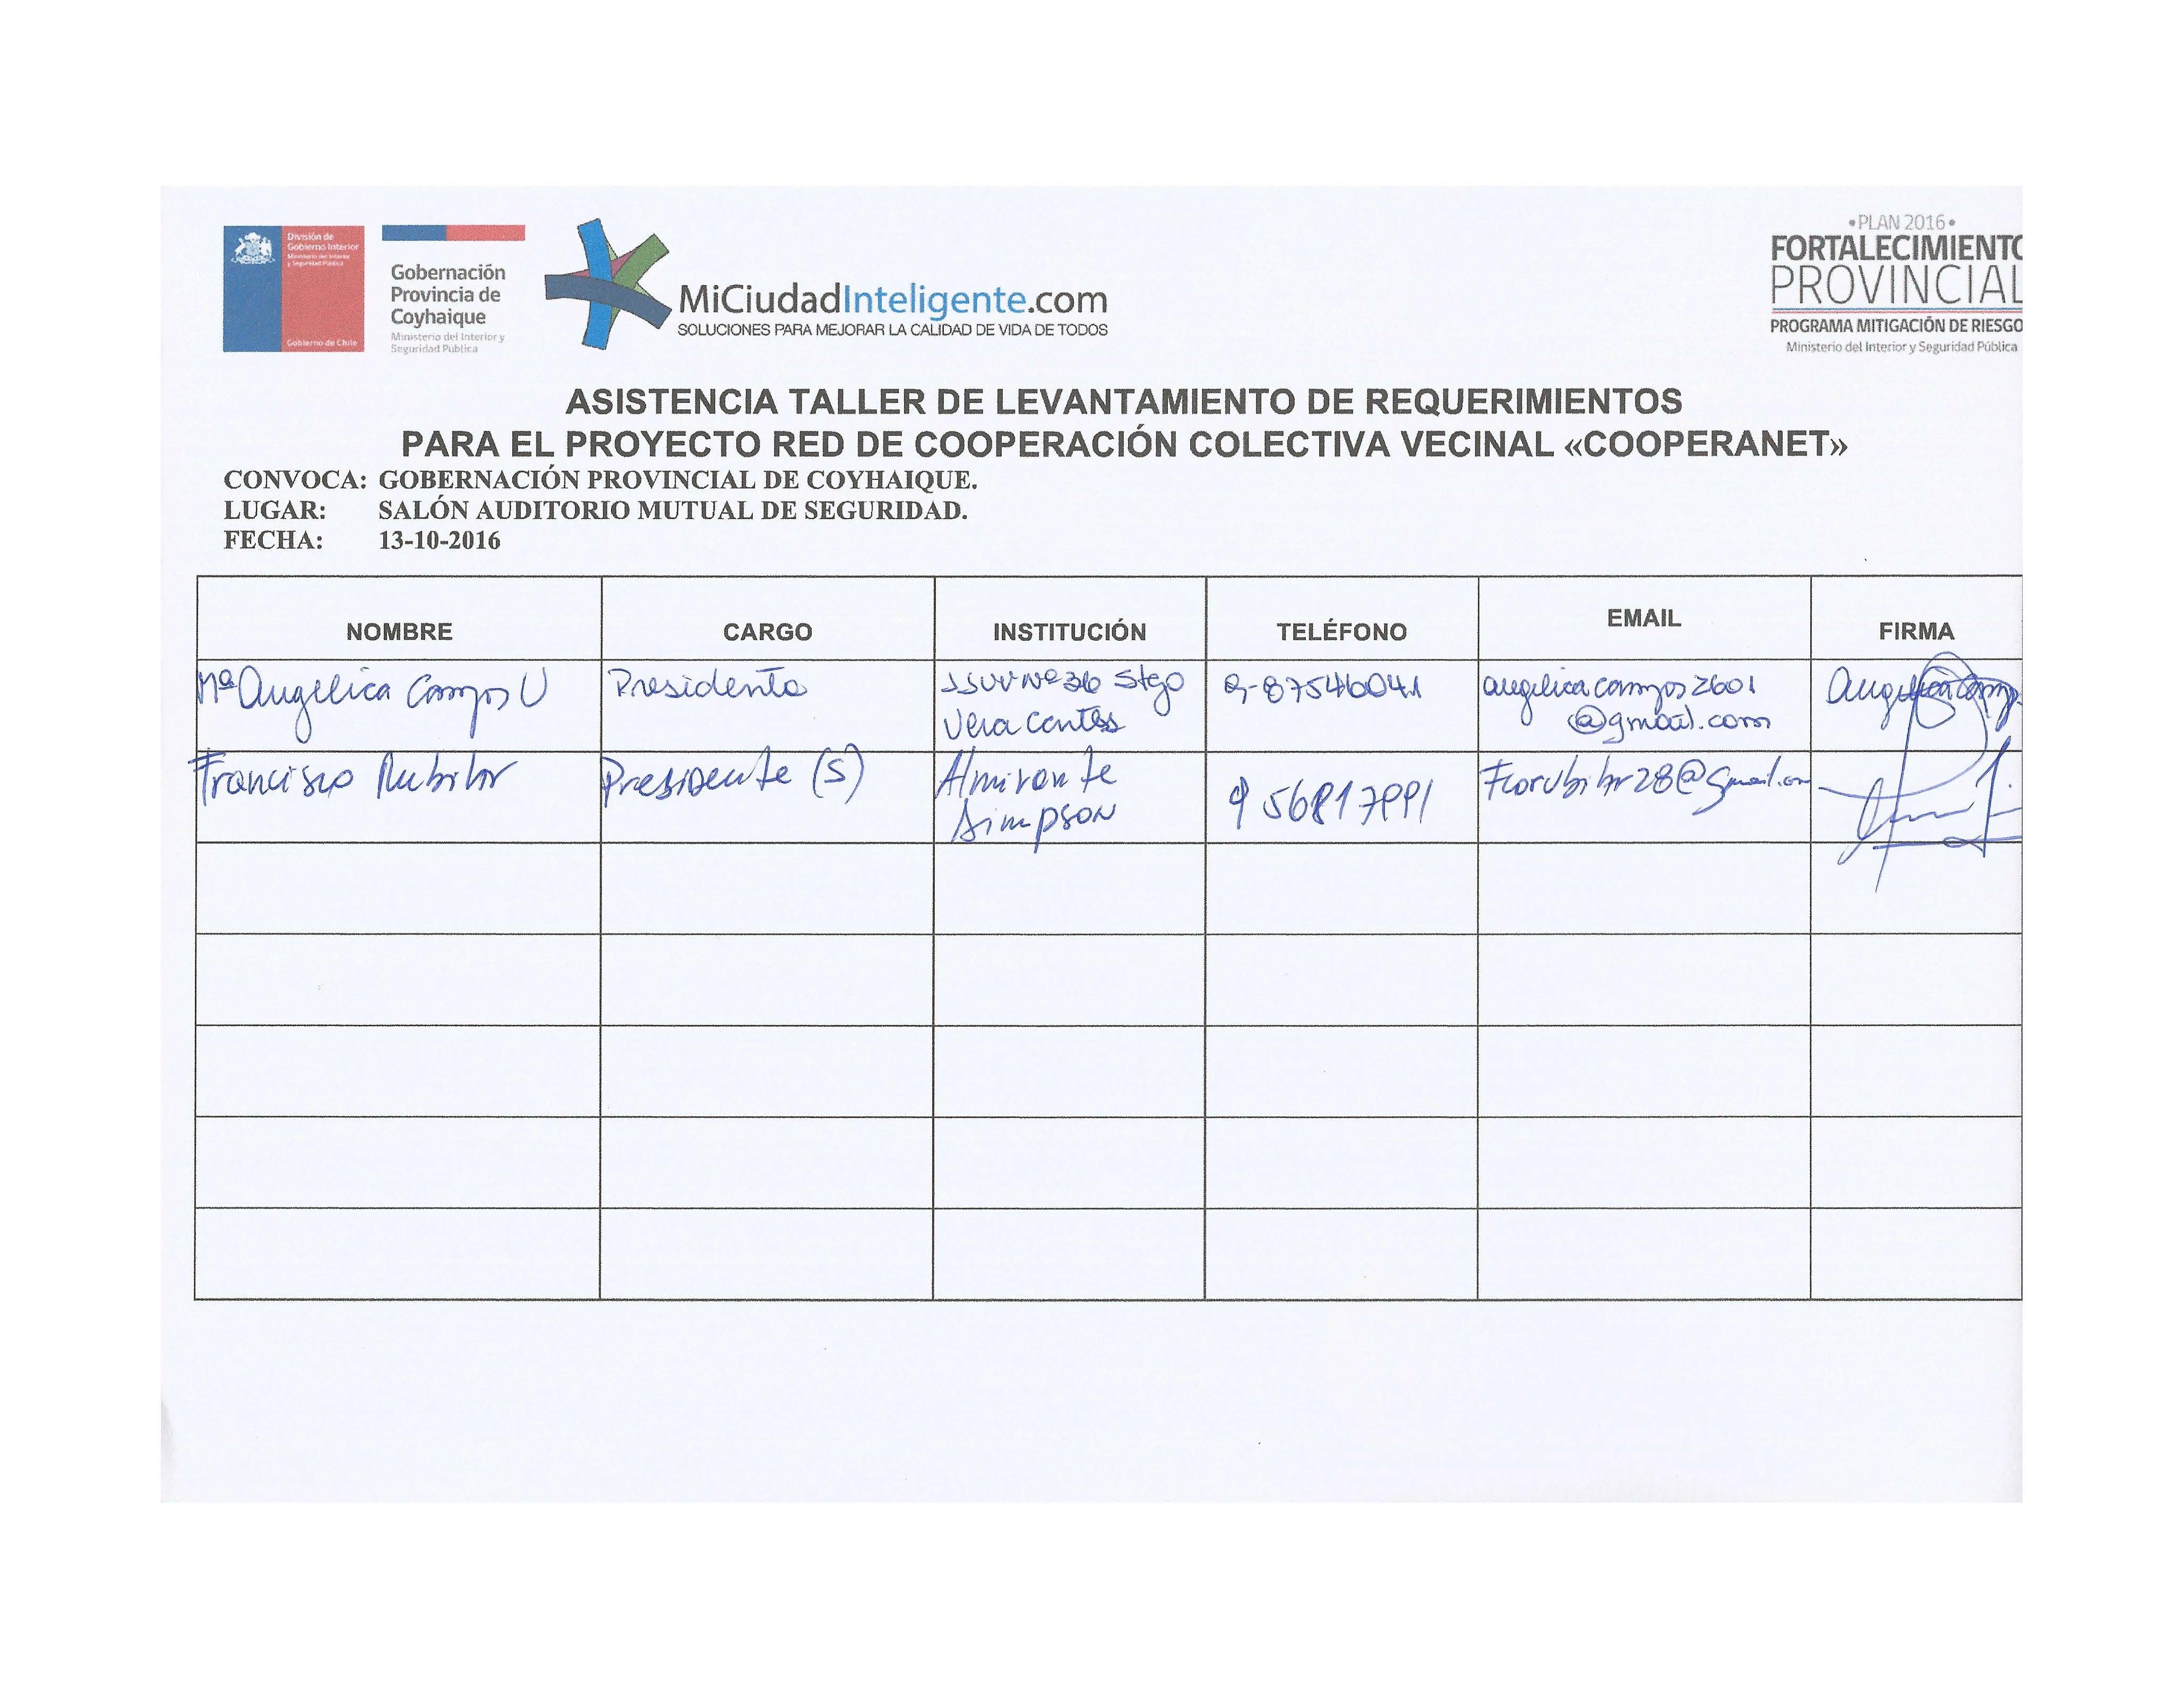 División de
Gobierno Interior
Ministerio del Interior
y Seguridad Pública
Gobierno de Chile
Gobernación
Provincia de
Coyhaique
Ministerio del Interior y
Seguridad Pública
MiCiudadInteligente.com
SOLUCIONES PARA MEJORAR LA CALIDAD DE VIDA DE TODOS
•PLAN 2016•
FORTALECIMIENTO
PROVINCIAL
PROGRAMA MITIGACIÓN DE RIESGO
Ministerio del Interior y Seguridad Pública
ASISTENCIA TALLER DE LEVANTAMIENTO DE REQUERIMIENTOS
PARA EL PROYECTO RED DE COOPERACIÓN COLECTIVA VECINAL «COOPERANET»
CONVOCA: GOBERNACIÓN PROVINCIAL DE COYHAIQUE.
LUGAR: SALÓN AUDITORIO MUTUAL DE SEGURIDAD.
FECHA: 13-10-2016
NOMBRE CARGO INSTITUCIÓN TELÉFONO EMAIL FIRMA
Mª Angelica Campos U Presidenta JJVV Nº 36 Stgo 9-87546041 angelicacampos2601
Vera @gmail.com
Francisco Rubilar Presidente (S) Almirante Fcorubilar28@gmail.com
Simpson